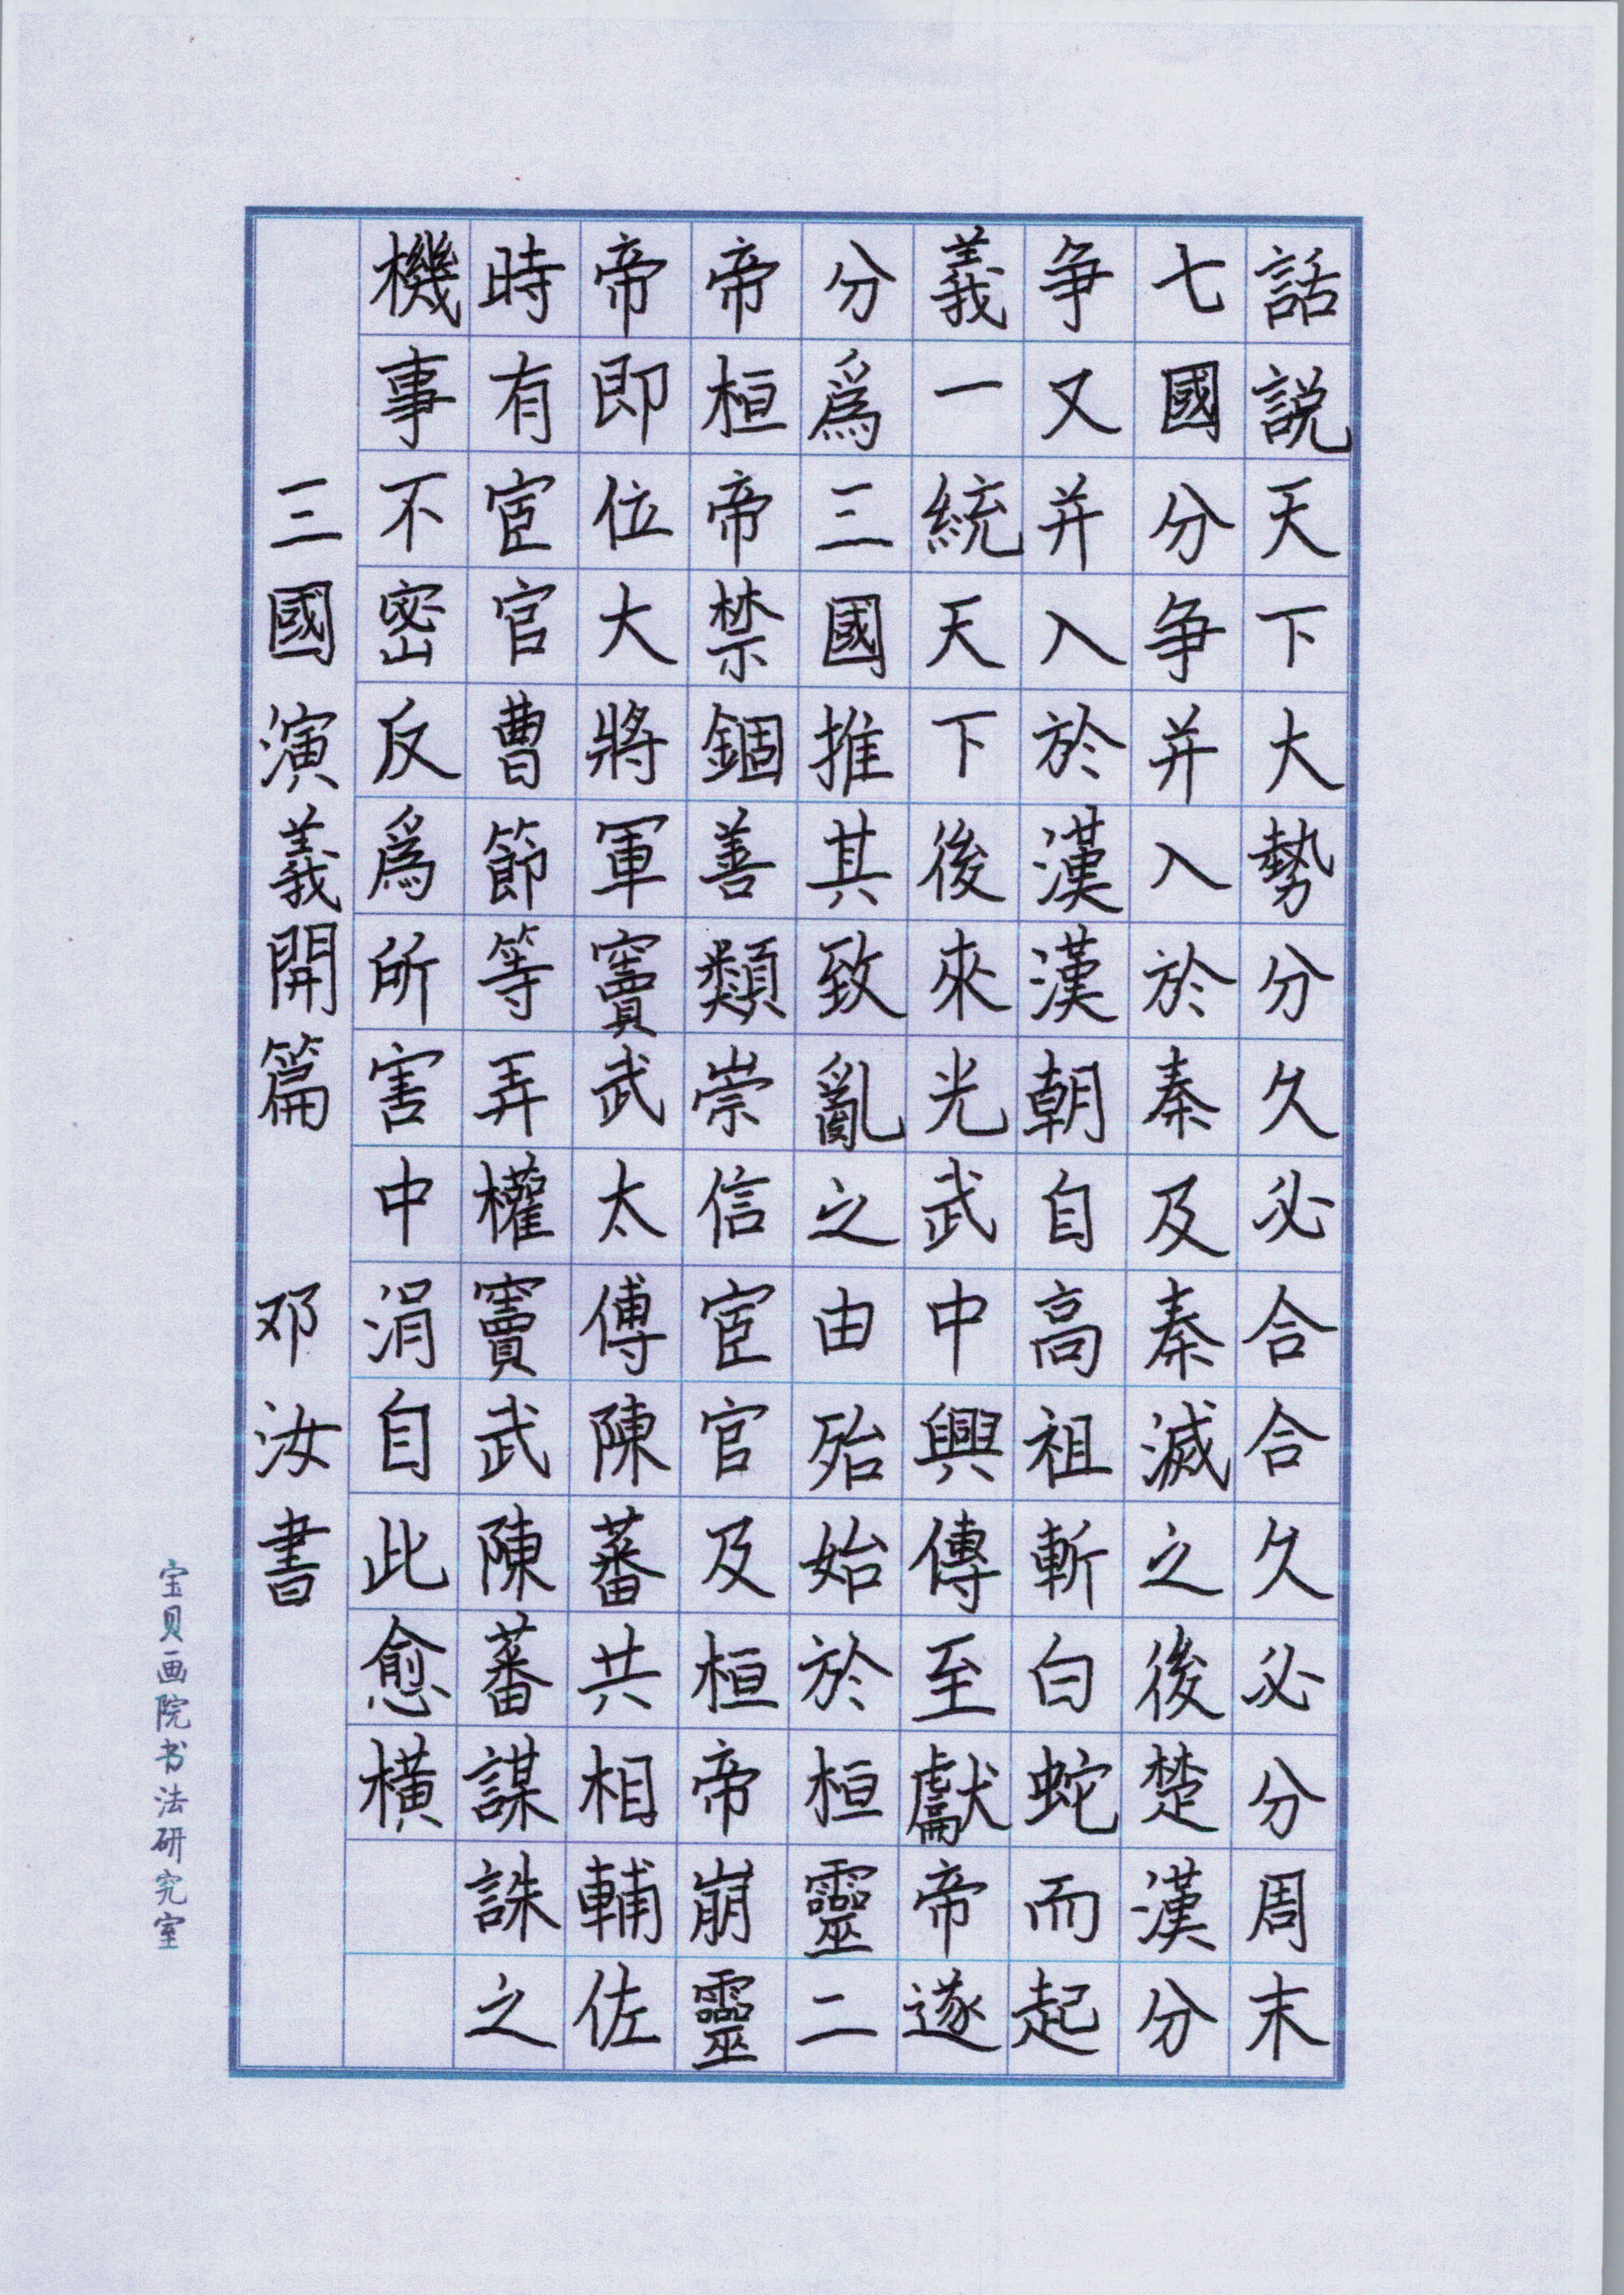 話説天下大勢分久必合合久必分周末
七國分争并入於秦及秦滅之後楚漢分
争又并入於漢漢朝自高祖斬白蛇而起
義一統天下後來光武中興傳至獻帝遂
分爲三國推其致亂之由殆始於桓靈二
帝桓帝禁錮善類崇信宦官及桓帝崩靈
帝即位大將軍竇武太傅陳蕃共相輔佐
時有宦官曹節等弄權竇武陳蕃謀誅之
機事不密反爲所害中涓自此愈横
三國演義開篇 邓汝書
宝贝画院书法研究室